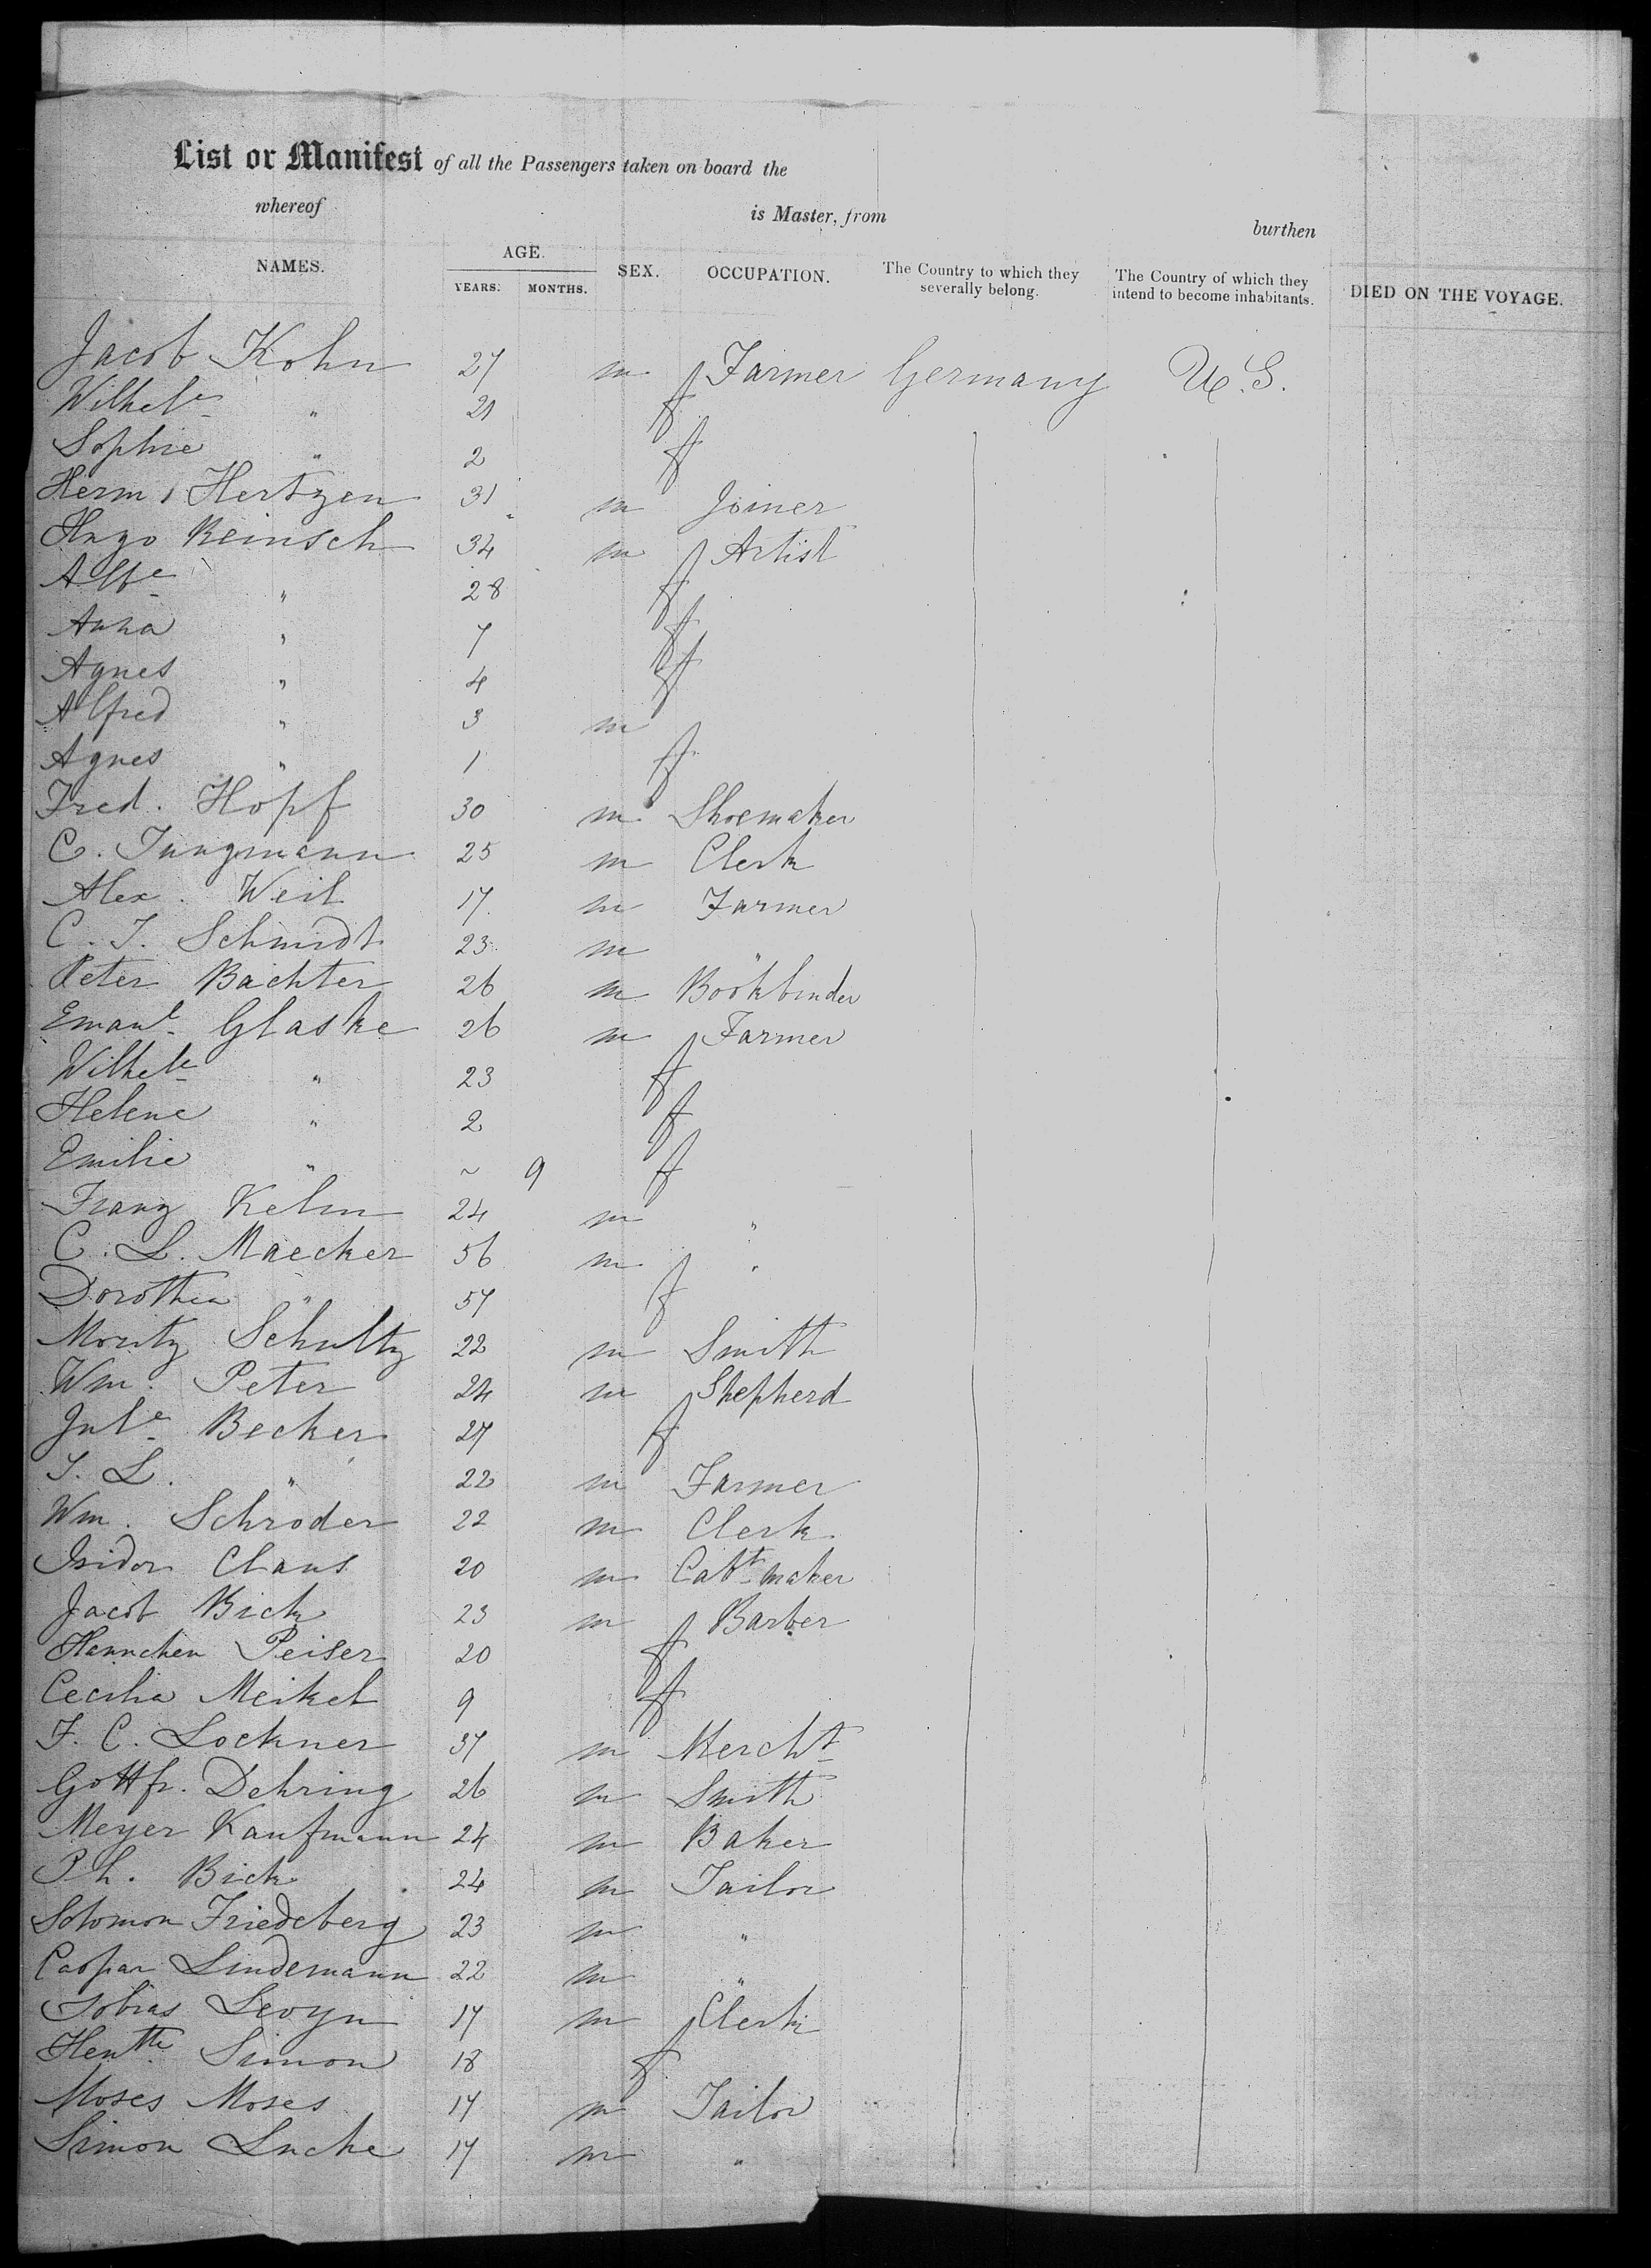 List or Manifest of all the Passengers taken on board the
whereof is Master, from burthen
NAMES. AGE. YEARS. MONTHS. SEX. OCCUPATION. The Country to which they severally belong. The Country of which they intend to become inhabitants. DIED ON THE VOYAGE.
Jacob Kohn 27 m Farmer Germany U.S.
Wilhele " 21 f
Sophie " 2 f
Herm. Hertzen 31 m Joiner
Hugo Reinsch 34 m Artist
Albe " 28 f
Anna " 7 f
Agnes " 4 f
Alfred " 3 m
Agnes " 1 f
Fred. Hopf 30 m Shoemaker
C. Jungmann 25 m Clerk
Alex. Weil 17 m Farmer
C. J. Schmidt 23 m "
Peter Bachter 26 m Bookbinder
Emanl Glaske 26 m Farmer
Wilhele " 23 f
Helene " 2 f
Emilie " ~ 9 f
Franz Kelm 24 m "
C. L. Maecker 56 m "
Dorothea " 57 f
Moritz Schultz 22 m Smith
Wm. Peter 24 m Shepherd
Jule Becker 27 f
J. L. " 22 m Farmer
Wm. Schroder 22 m Clerk
Isidor Claus 20 m Cabt maker
Jacob Bick 23 m Barber
Hannchen Peiser 20 f
Cecilia Meikel 9 f
F. C. Lockner 37 m Mercht
Gottfr. Dehring 26 m Smith
Meyer Kaufmann 24 m Baker
Ph. Bick 24 m Tailor
Solomon Friedeberg 23 m "
Caspar Lindemann 22 m "
Tobias Levyn 17 m Clerk
Hentte Simon 18 f
Moses Moses 17 m Tailor
Simon Lucke 17 m "